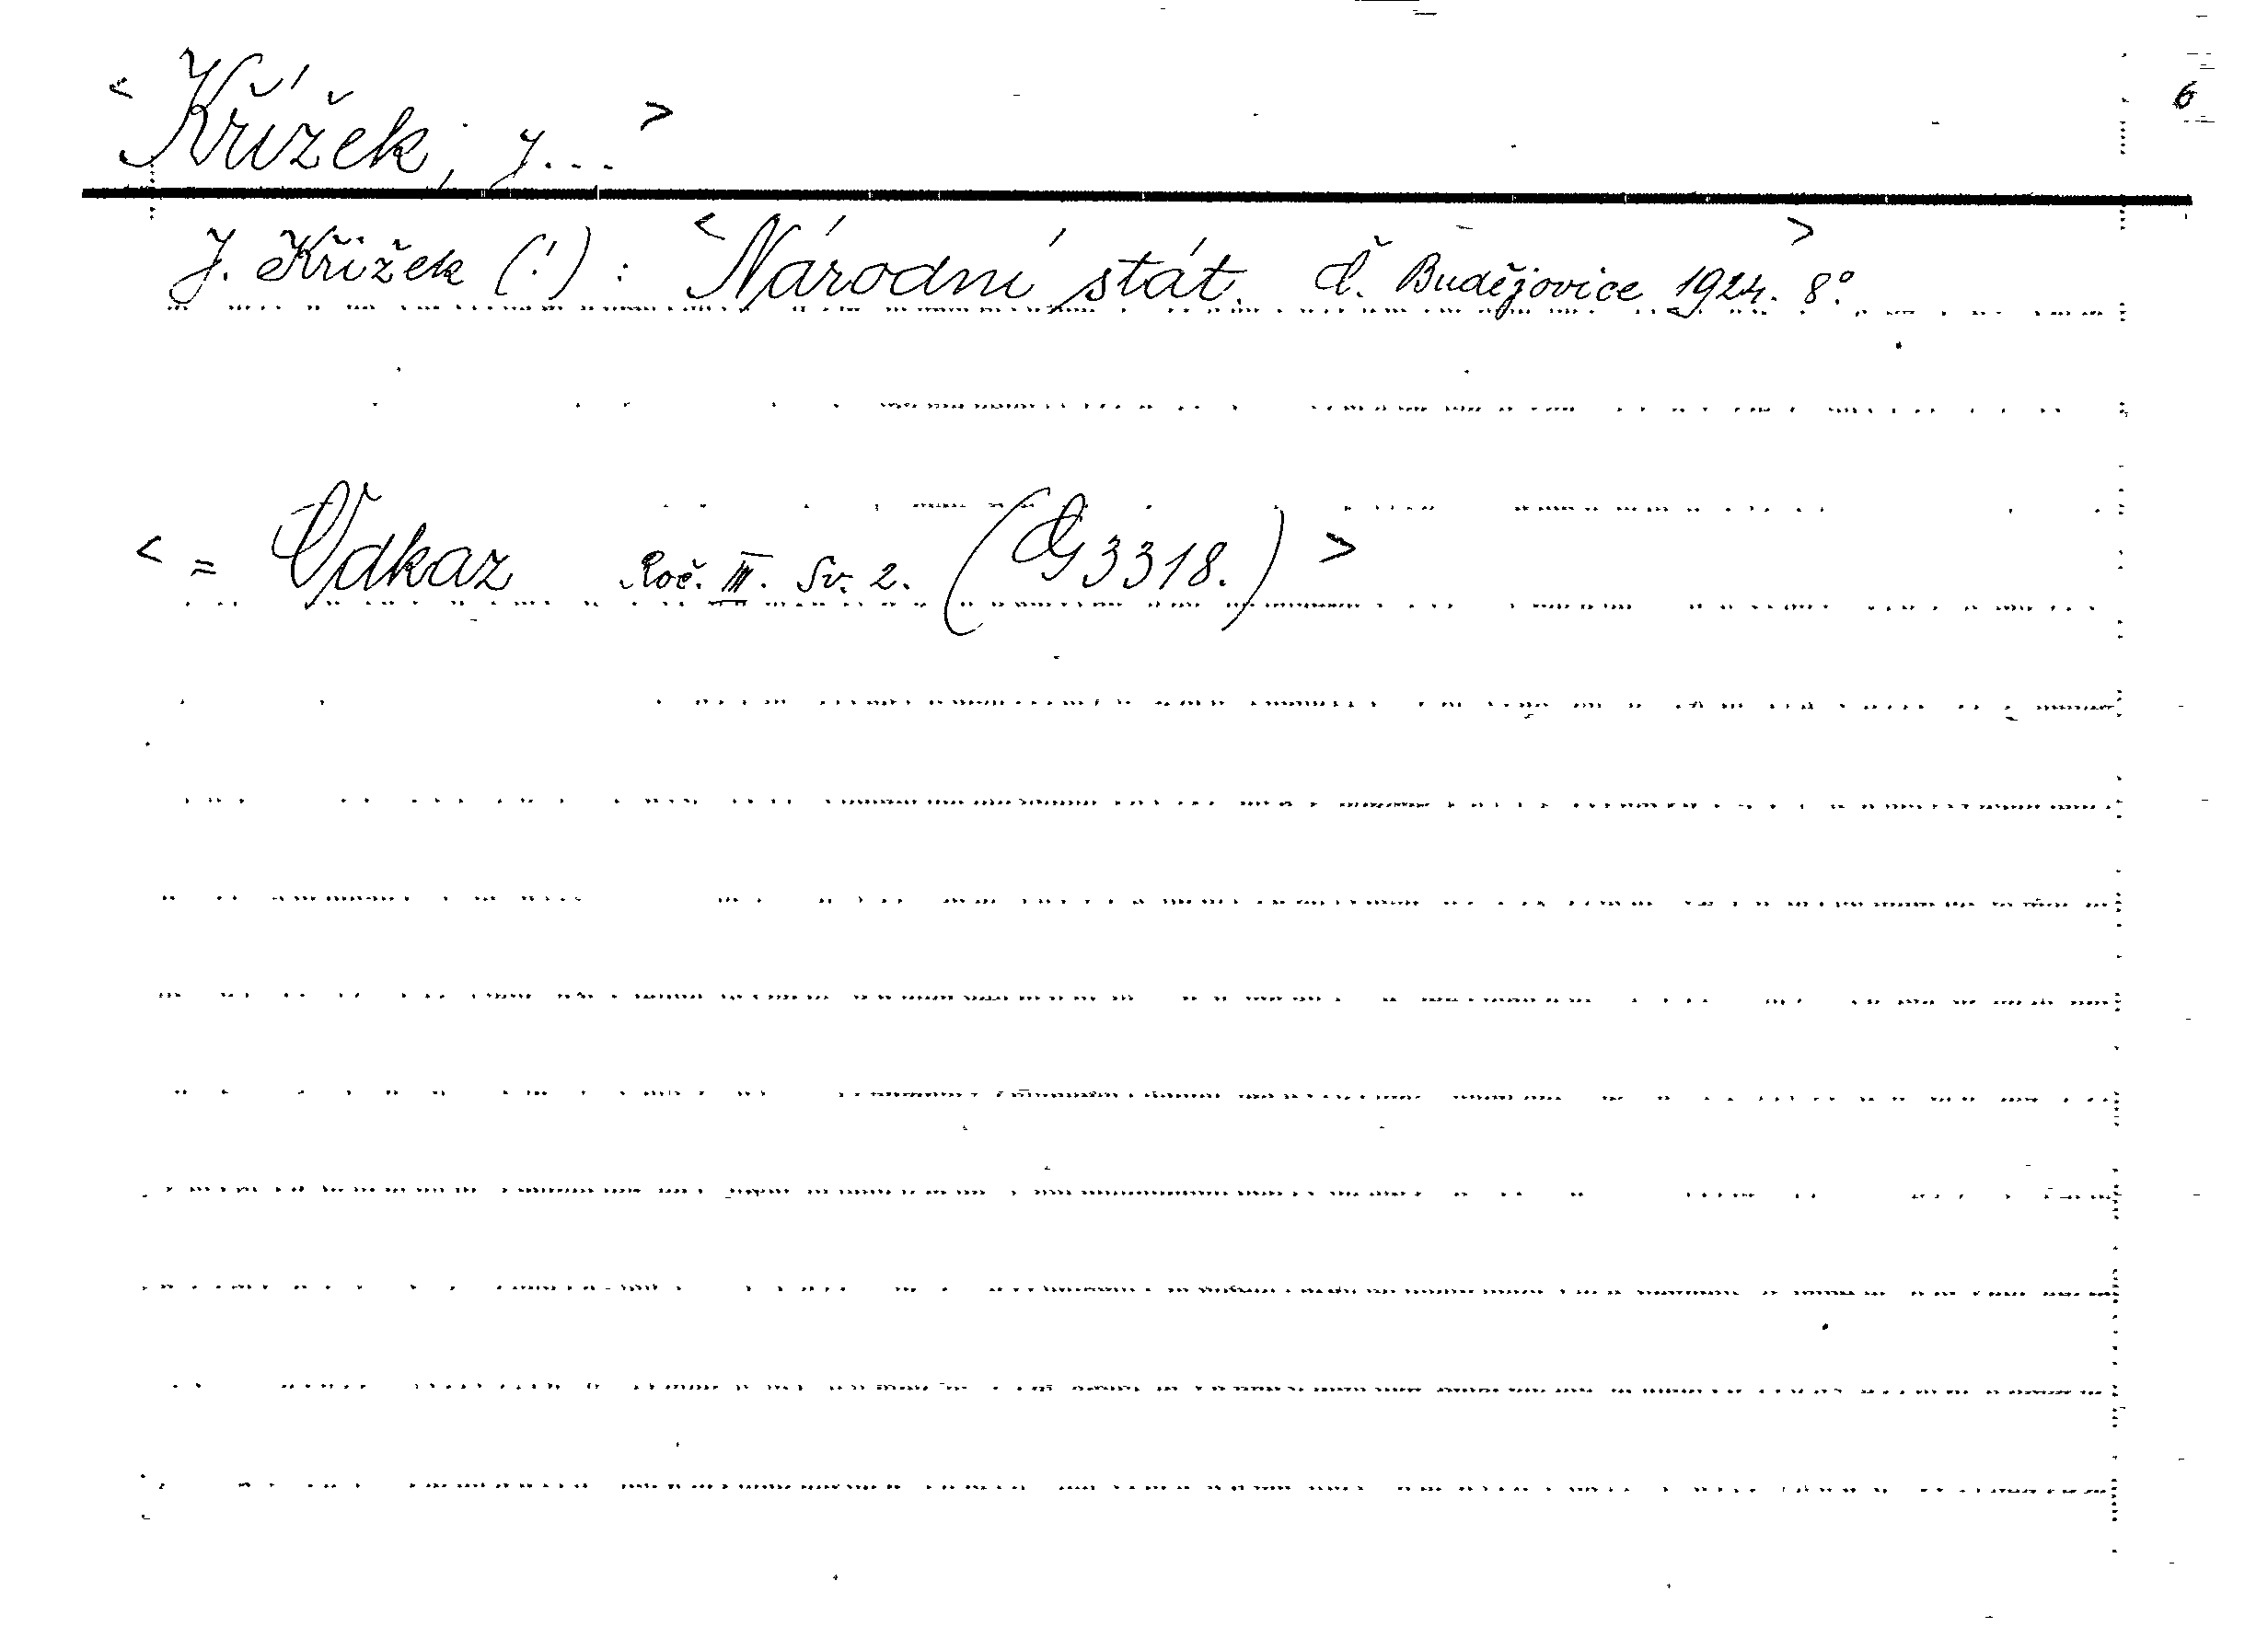 < Křížek, J... >
6
J. Křížek (!) : < Národní stát. Č. Budějovice 1924. 8°. >
< = Odkaz Roč. III. Sv. 2. (G 3318.) >